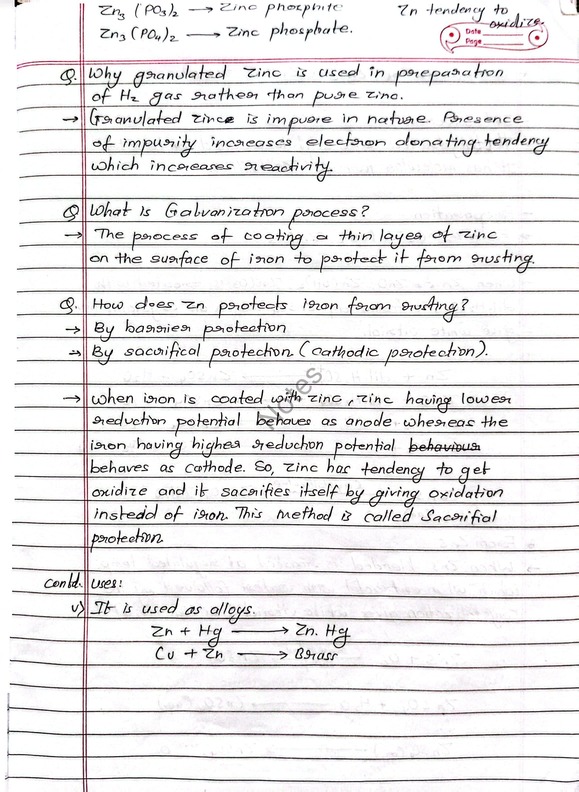 Zn3 (PO3)2 → Zinc phosphite
Zn tendency to
oxidize.
Zn3 (PO4)2 → Zinc phosphate.
Date
Page
Q. Why granulated zinc is used in preparation
of H2 gas rather than pure zinc.
→ Granulated zince is impure in nature. Presence
of impurity increases electron donating tendency
which increases reactivity.
Q What is Galvanization process?
→ The process of coating a thin layer of zinc
on the surface of iron to protect it from rusting.
Q. How does Zn protects iron from rusting?
→ By barrier protection
→ By sacrifical protection (cathodic protection).
→ when iron is coated with zinc, zinc having lower
reduction potential behaves as anode whereas the
iron having higher reduction potential behaviour
behaves as cathode. So, zinc has tendency to get
oxidize and it sacrifies itself by giving oxidation
instedd of iron. This method is called Sacrifial
protection
Notes
contd. uses:
v) It is used as alloys.
Zn + Hg → Zn. Hg
Cu + Zn → Brass